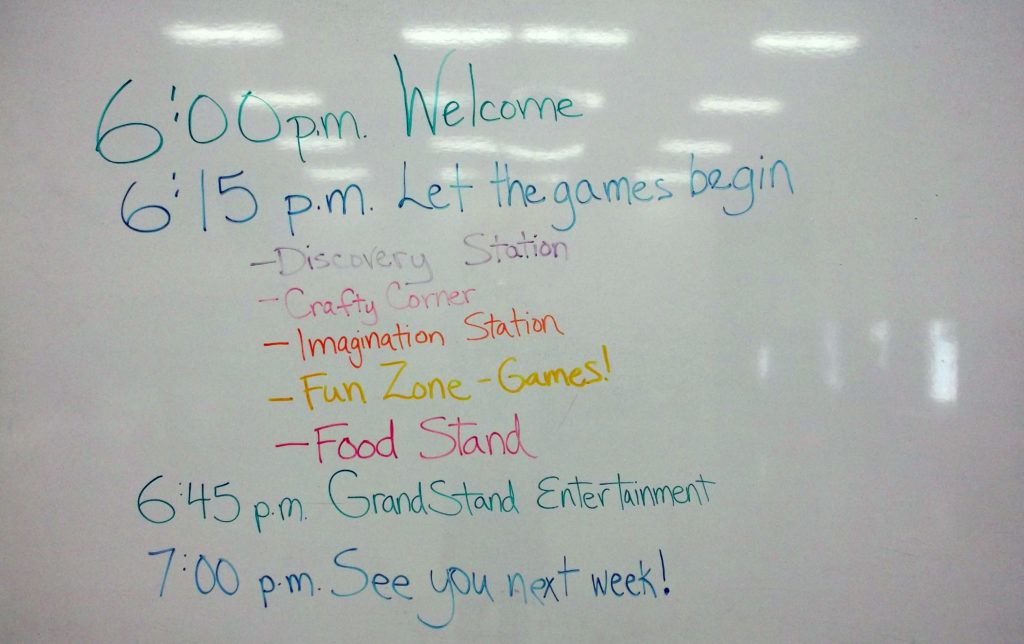 6:00 p.m. Welcome
6:15 p.m. Let the games begin
- Discovery Station
- Crafty Corner
- Imagination Station
- Fun Zone - Games!
- Food Stand
6:45 p.m. GrandStand Entertainment
7:00 p.m. See you next week!